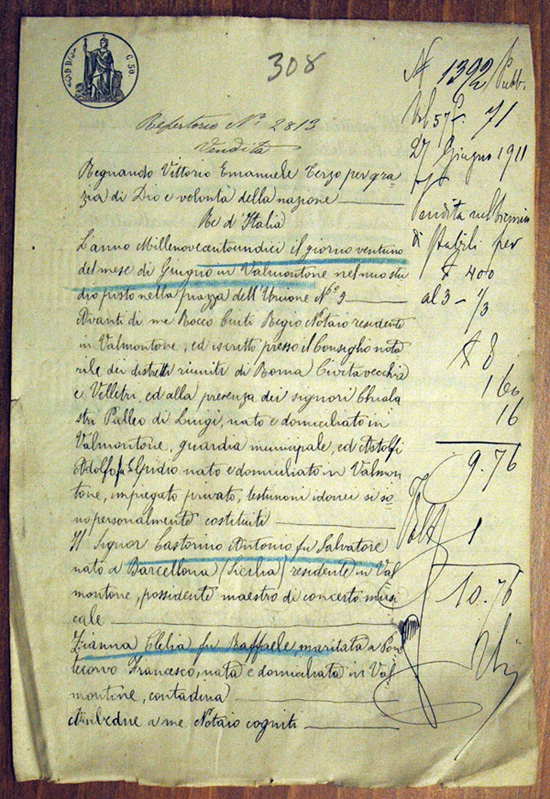 308
C. 50
Repertorio N° 2813
Vendita
Regnando Vittorio Emanuele Terzo per gra-
zia di Dio e volontà della nazione
Re d'Italia
L'anno Millenovecentoundici il giorno ventuno
del mese di Giugno in Valmontone nel mio stu
dio posto nella piazza dell'Unione N° 2
Avanti di me Rocco Regio Notaio residente
in Valmontone, ed iscritto presso il Consiglio nota
rile dei distretti riuniti di Roma Civitavecchia
e Velletri, ed alla presenza dei signori
di Luigi, nato e domiciliato in
Valmontone, guardia municipale, ed Astolfi
Adolfo fu Elpidio nato e domiciliato in Valmon
tone, impiegato privato, testimoni idonei si so
no personalmente costituiti
Il Signor Castorino Antonio fu Salvatore
nato a Barcellona (Sicilia) residente in Val
montone, possidente maestro di concerto musi
cale
Zianna Clelia fu Raffaele, maritata a Pon
tecorvo Francesco, nata e domiciliata in Val
montone, contadina
Ambedue a me Notaio cogniti
N 1392 Pubb.
Vol 57 71
27 Giugno 1911
Vendita
di stabili per
£ 400
al 3 - 1/3
£ 8
1 60
16
9.76
1
10.76